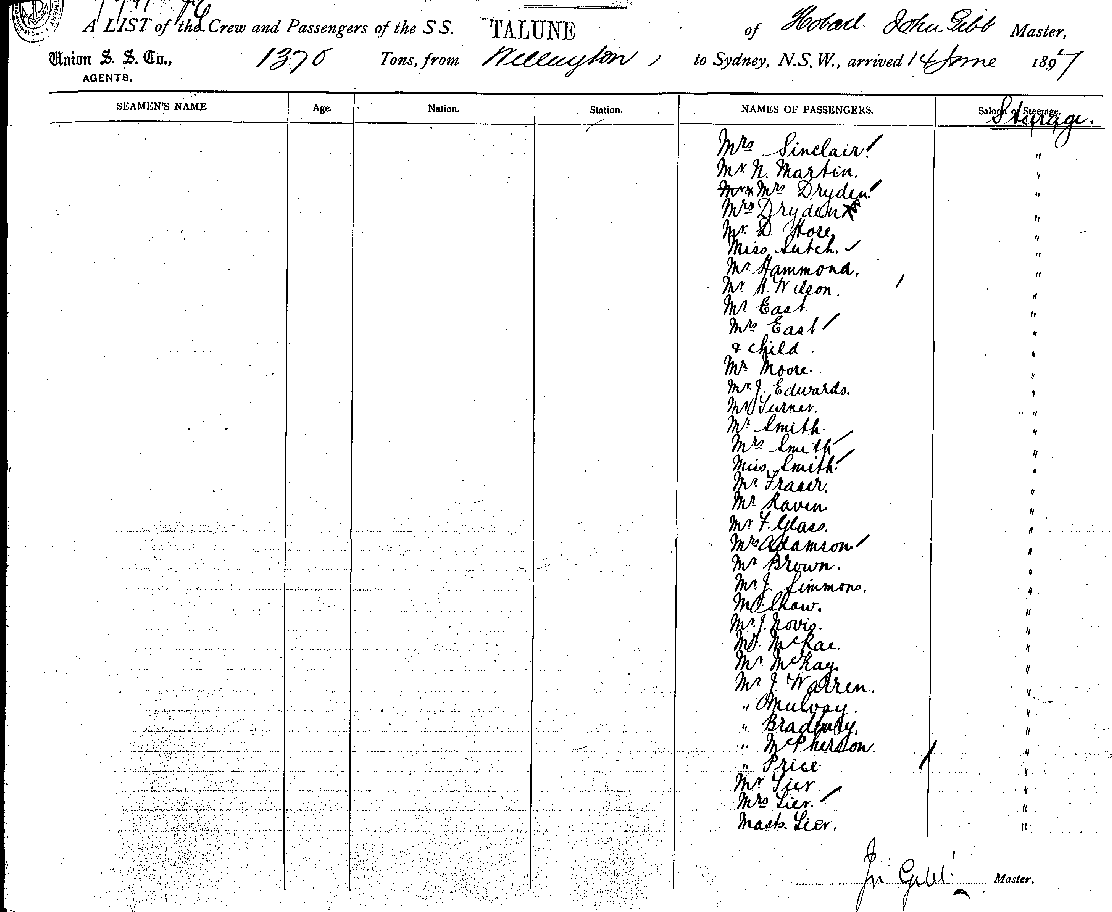 A LIST of the Crew and Passengers of the S.S. TALUNE of Hobart John Gibb Master,
Union S. S. Co., 1370 Tons, from Wellington, to Sydney, N.S.W., arrived 14 June 1897
AGENTS.
SEAMEN'S NAME Age. Nation. Station. NAMES OF PASSENGERS. Saloon Steerage.
Steerage.
Mrs Sinclair "
Mr N. Martin. "
Mrs Dryden "
Mrs Dryden "
Mr D Hore "
Miss Sutch. "
Mr Hammond. "
Mr A. Wilson. "
Mr East "
Mrs East "
& child. "
Mr Moore. "
Mr J. Edwards. "
Mr Turner. "
Mr Smith "
Mrs Smith "
Miss Smith "
Mr Fraser. "
Mr Raven "
Mr F. Glass. "
Mrs Adamson "
Mr Brown. "
Mr J. Simmons. "
Mr Shaw. "
Mr J. Novis. "
Mr McRae. "
Mr McKay. "
Mr J. Warren. "
" Mulvay. "
" "
" McPherson "
" Price "
Mr Lier "
Mrs Lier. "
Mast. Lier. "
Jn Gibb Master.